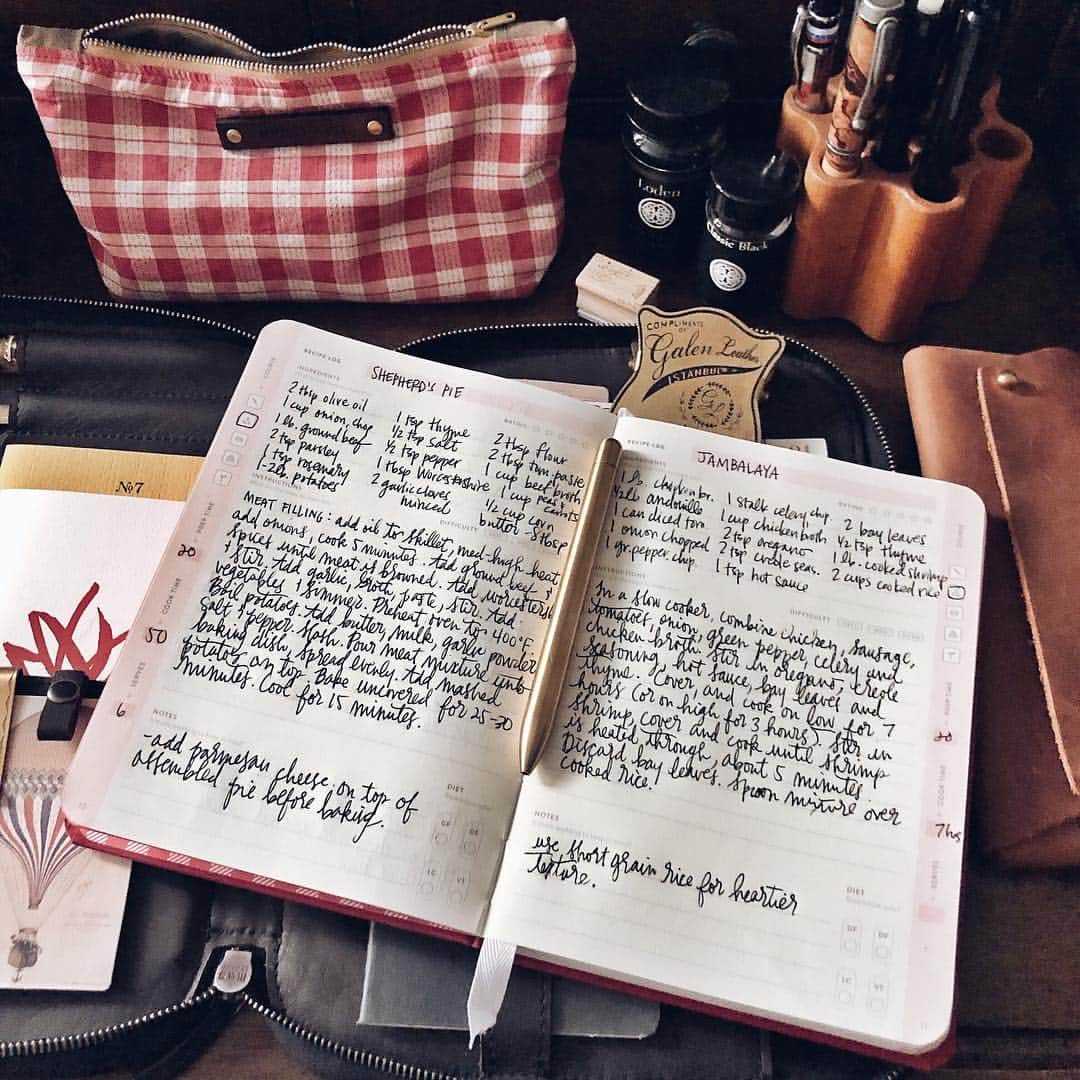 Loden
Classic Black
COMPLIMENTS
OF
Galen Leather
ISTANBUL
GL
No7
RECIPE LOG
SHEPHERD'S PIE
INGREDIENTS
RATING
COURSE
2 tbsp olive oil
1 cup onion, chop
1 lb. ground beef
2 tsp parsley
1 tsp rosemary
1-2 lb. potatoes
1 tsp thyme
1/2 tsp salt
1/2 tsp pepper
1 tbsp Worcestershire
2 garlic cloves
minced
2 tbsp flour
2 tbsp tom. paste
1 cup beef broth
1 cup peas &
carrots
1/2 cup corn
butter - 8 tbsp
INSTRUCTIONS
DIFFICULTY
MEAT FILLING: add oil to skillet, med-high heat,
add onions, cook 5 minutes. Add ground beef &
spices until meat is browned. Add worcestersh
Stir. Add garlic, broth, paste, stir. Add
vegetables & simmer. Preheat oven to 400°F.
Boil potatoes. Add butter, milk, garlic powder,
salt & pepper. Mash. Pour meat mixture into
baking dish, spread evenly. Add mashed
potatoes on top. Bake uncovered for 25-30
minutes. Cool for 15 minutes.
PREP TIME
20
COOK TIME
50
SERVES
6
NOTES
-add parmesan cheese on top of
assembled pie before baking.
DIET
GF
DF
LC
VT
RECIPE LOG
JAMBALAYA
INGREDIENTS
RATING
COURSE
1 lb. chicken br.
1/2 lb andouille
1 can diced tom
1 onion chopped
1 gr. pepper chp.
1 stalk celery, chp
1 cup chicken broth
2 tsp oregano
2 tsp creole seas.
1 tsp hot sauce
2 bay leaves
1/2 tsp thyme
1 lb. cooked shrimp
2 cups cooked rice
INSTRUCTIONS
DIFFICULTY
In a slow cooker, combine chicken, sausage,
tomatoes, onion, green pepper, celery and
chicken broth. Stir in oregano, creole
seasoning, hot sauce, bay leaves and
thyme. Cover, and cook on low for 7
hours (or on high for 3 hours). Stir in
shrimp, cover and cook until shrimp
is heated through, about 5 minutes.
Discard bay leaves. Spoon mixture over
cooked rice.
PREP TIME
20
COOK TIME
7hrs
SERVES
NOTES
use short grain rice for heartier
texture.
DIET
GF
DF
LC
VT